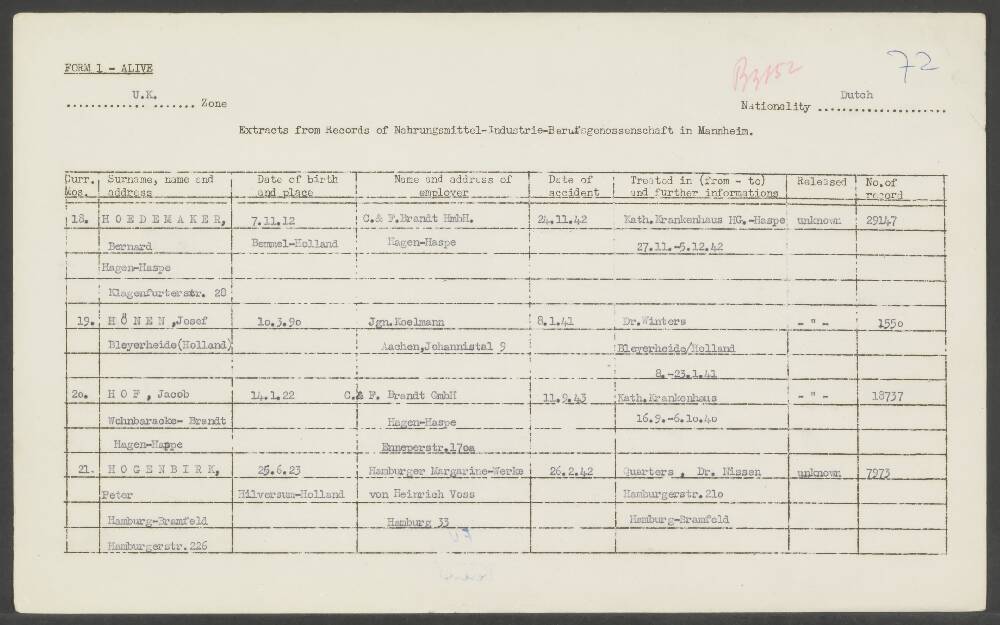 FORM 1 - ALIVE
72
U.K.
Zone
Dutch
Nationality
Extracts from Records of Nahrungsmittel-Industrie-Berufsgenossenschaft in Mannheim.
Curr. Nos. | Surname, name and address | Date of birth and place | Name and address of employer | Date of accident | Treated in (from - to) and further informations | Released | No.of record
18. | H O E D E M A K E R, | 7.11.12 | C.& F.Brandt HmbH. | 24.11.42 | Kath.Krankenhaus HG.-Haspe | unknown | 29147
Bernard | Bemmel-Holland | Hagen-Haspe | 27.11.-5.12.42
Hagen-Haspe
Klagenfurterstr. 28
19. | H Ö N E N ,Josef | 1o.3.9o | Jgn.Koelmann | 8.1.41 | Dr.Winters | - " - | 155o
Bleyerheide(Holland) | Aachen,Johannistal 9 | Bleyerheide/Holland
8.-23.1.41
2o. | H O F , Jacob | 14.1.22 | C.& F. Brandt GmbH | 11.9.43 | Kath.Krankenhaus | - " - | 18737
Wohnbaracke- Brandt | Hagen-Haspe | 16.9.-6.1o.4o
Hagen-Happe | Enneperstr.17oa
21. | H O G E N B I R K, | 25.6.23 | Hamburger Margarine-Werke | 26.2.42 | Quarters , Dr. Nissen | unknown | 7973
Peter | Hilversum-Holland | von Heinrich Voss | Hamburgerstr.21o
Hamburg-Bramfeld | Hamburg 33 | Hamburg-Bramfeld
Hamburgerstr.226